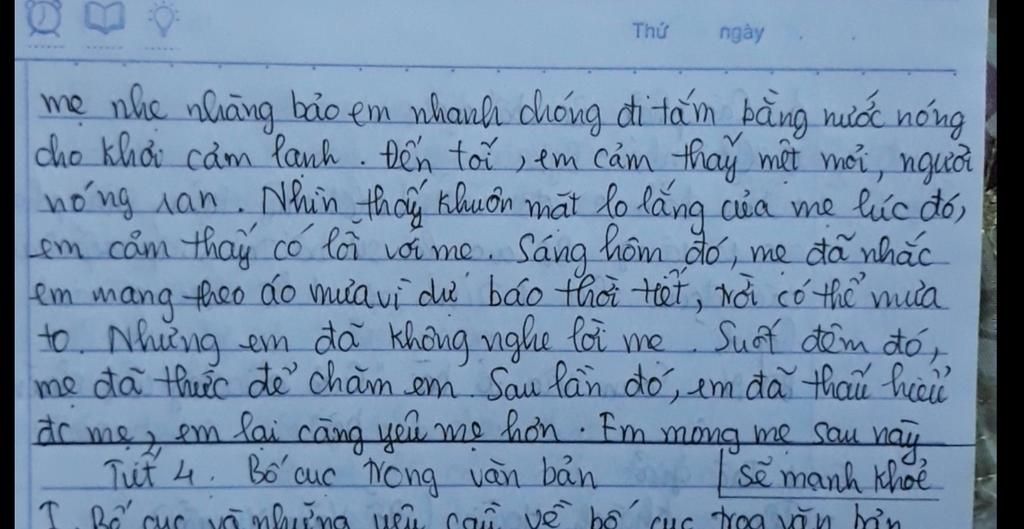 Thứ ngày
mẹ nhẹ nhàng bảo em nhanh chóng đi tắm bằng nước nóng
cho khỏi cảm lạnh. Đến tối, em cảm thấy mệt mỏi, người
nóng ran. Nhìn thấy khuôn mặt lo lắng của mẹ lúc đó,
em cảm thấy có lỗi với mẹ. Sáng hôm đó, mẹ đã nhắc
em mang theo áo mưa vì dự báo thời tiết, trời có thể mưa
to. Nhưng em đã không nghe lời mẹ. Suốt đêm đó,
mẹ đã thức để chăm em. Sau lần đó, em đã thấu hiểu
đc mẹ, em lại càng yêu mẹ hơn. Em mong mẹ sau này
sẽ mạnh khoẻ
Tiết 4. Bố cục trong văn bản
I. Bố cục và những yêu cầu về bố cục trog văn bản